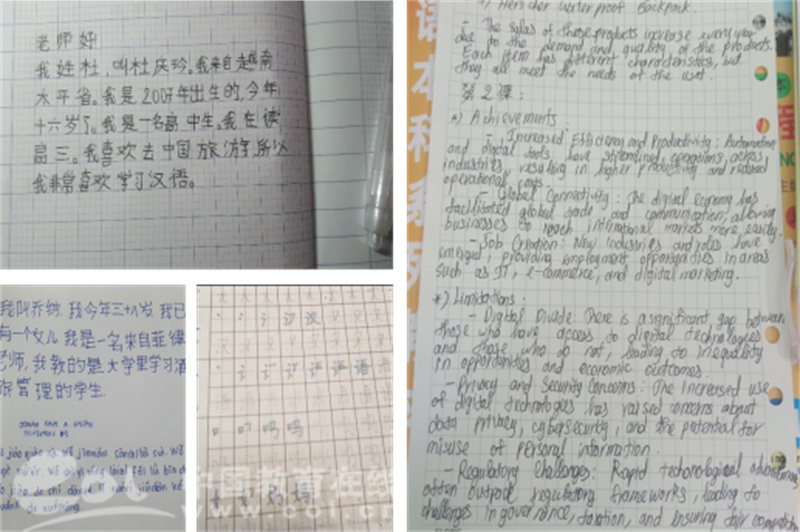 老师好
我姓杜,叫杜庆玲。我来自越南
太平省。我是2007年出生的,今年
十六岁了。我是一名高中生。我在读
高三。我喜欢去中国旅游所以
我非常喜欢学习汉语。
我叫乔纳.我今年三十八岁.我已
有一个女儿.我是一名来自菲律
老师.我教的是大学里学习酒
旅管理的学生.
汉
语
吗
妈
Waterproof Backpack.
- The sales of these products increase every year
due to the demand and quality of the products.
Each item has different characteristics, but
they all meet the needs of the user.
第2课:
*) Achievements
- Increased Efficiency and Productivity: Automation
and digital tools have streamlined operations across
industries, resulting in higher productivity and reduced
operational costs.
- Global Connectivity: The digital economy has
facilitated global trade and communication, allowing
businesses to reach international markets more easily.
- Job Creation: New industries and roles have
emerged, providing employment opportunities in areas
such as IT, e-commerce, and digital marketing.
*) Limitations:
- Digital Divide: There is a significant gap between
those who have access to digital technologies
and those who do not, leading to inequality
in opportunities and economic outcomes.
- Privacy and Security Concerns: The increased use
of digital technologies has raised concerns about
data privacy, cybersecurity, and the potential for
misuse of personal information.
- Regulatory Challenges: Rapid technological
often outpace regulatory frameworks, leading to
challenges in governance, taxation, and ensuring fair
中国教育在线